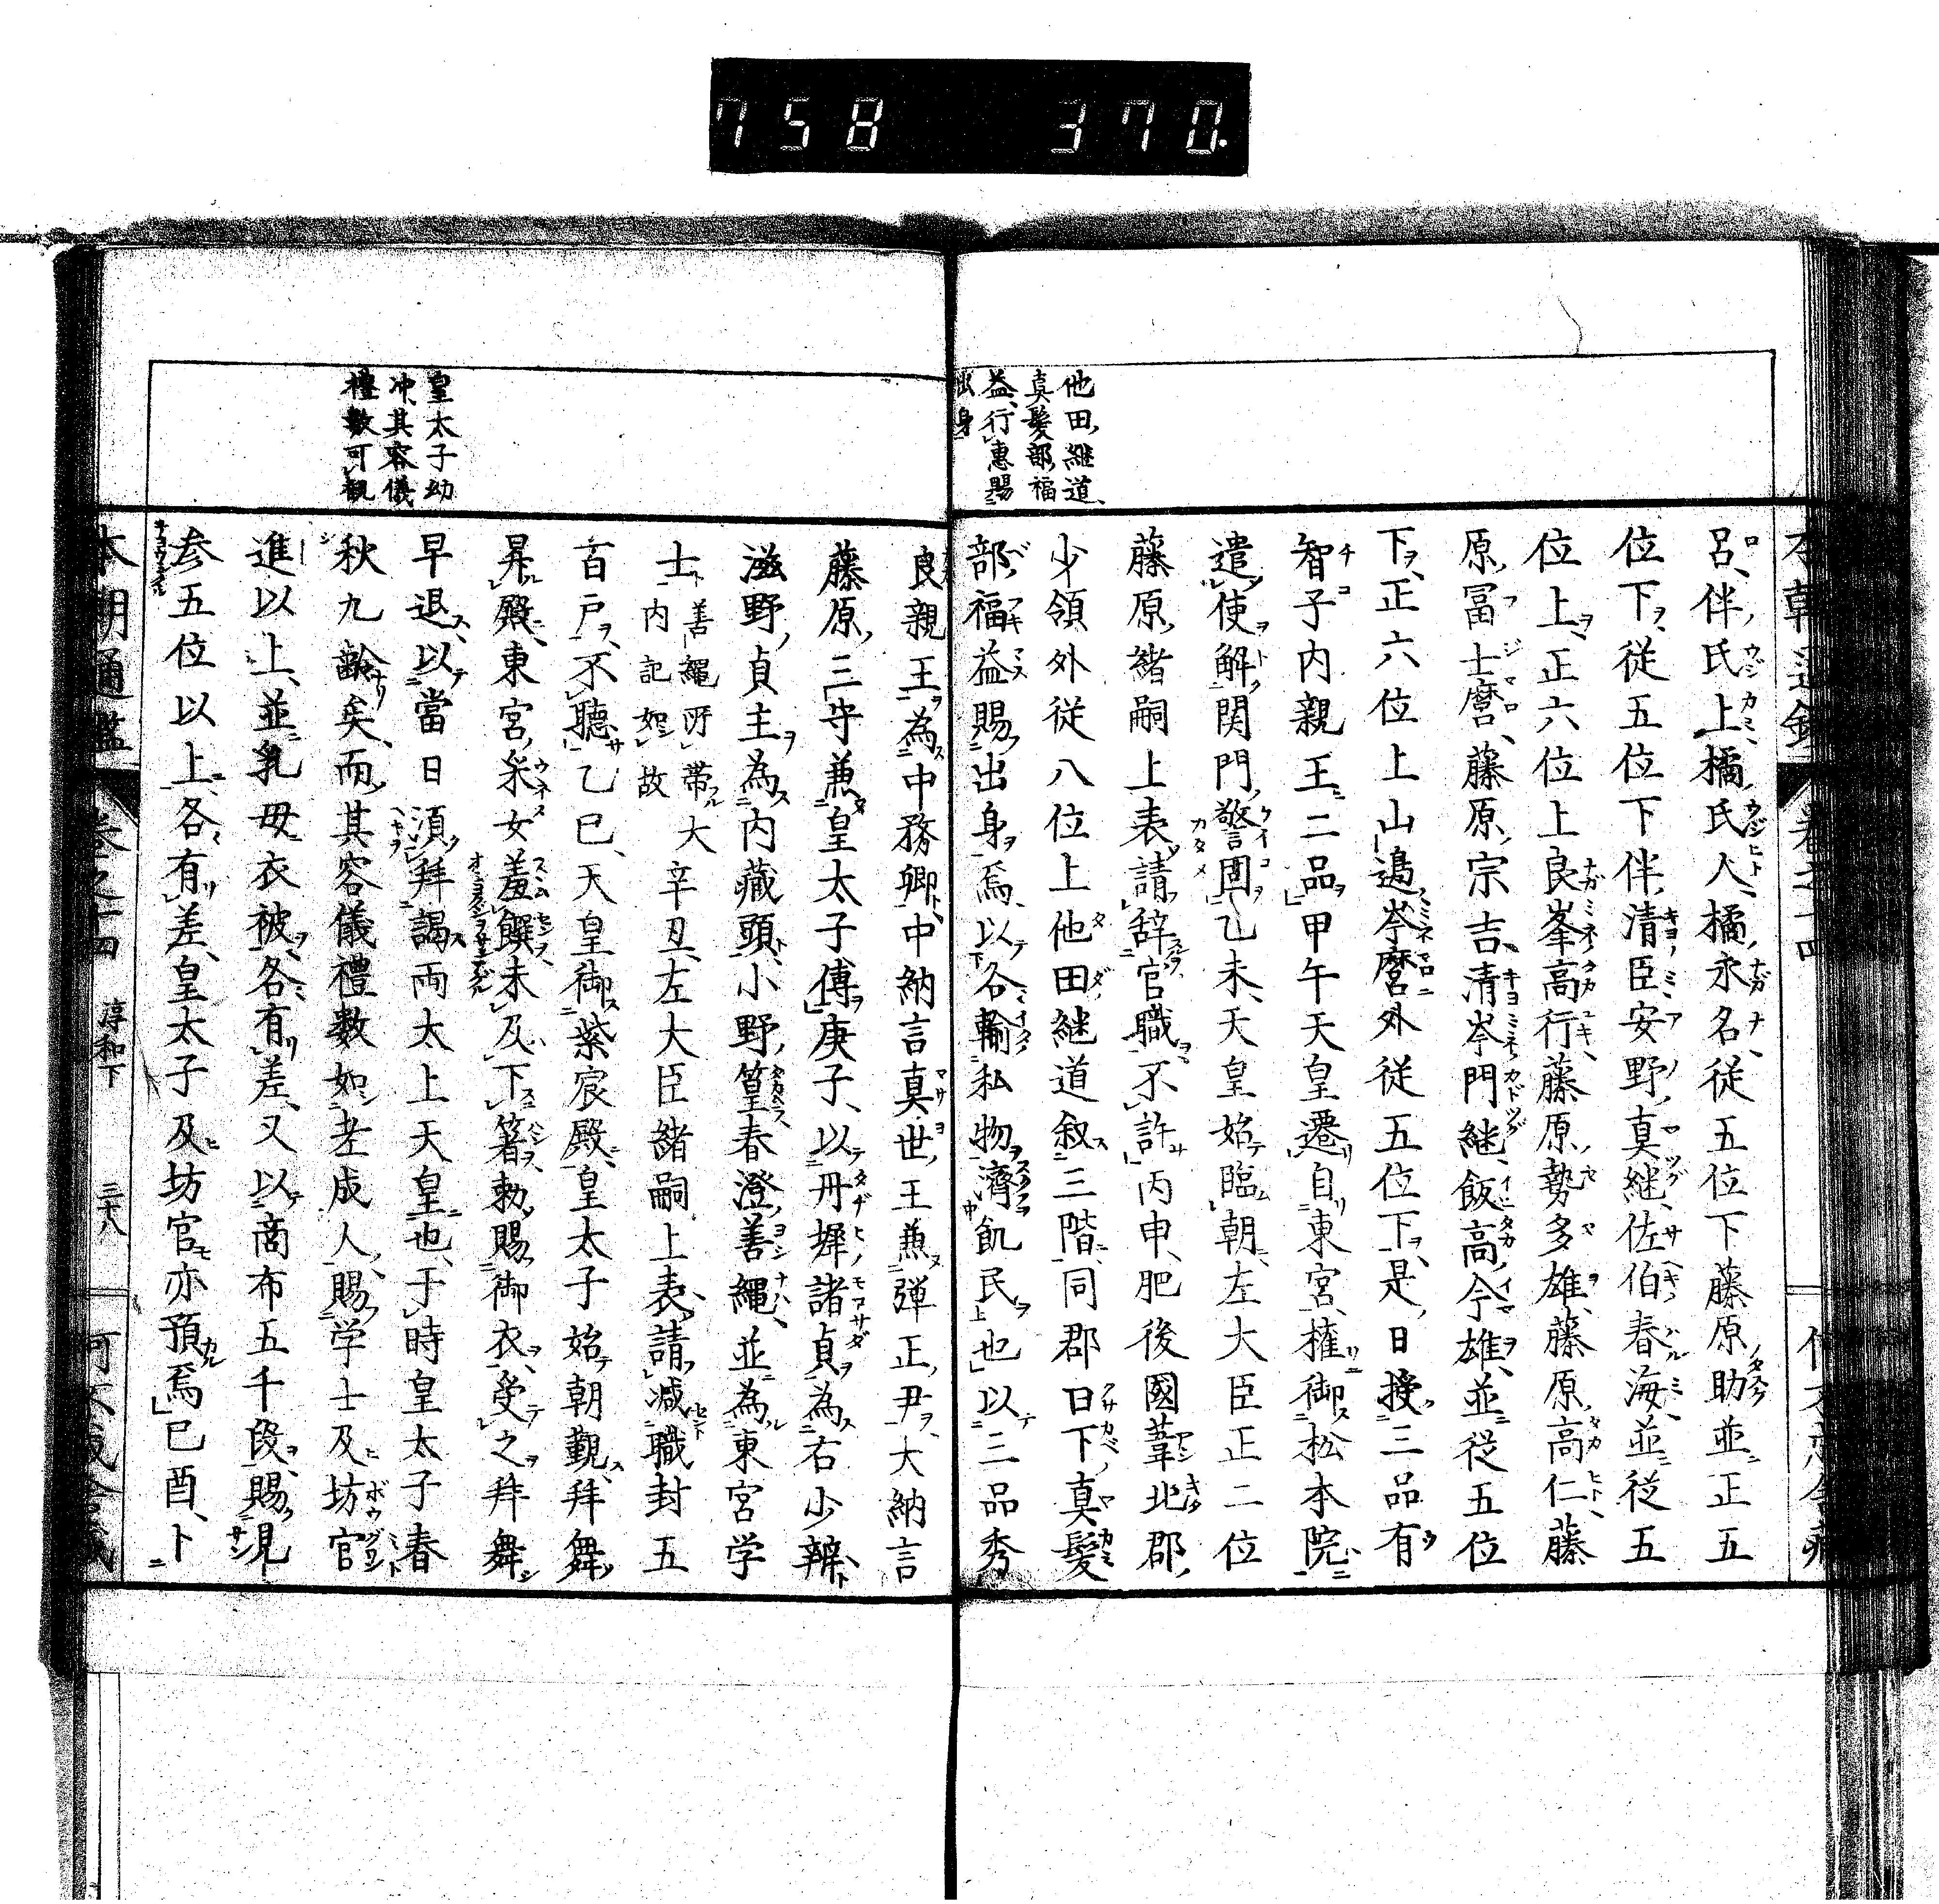 758 370.
他田継道、
真髪部福
益、行惠賜
出身
呂、伴氏上橘氏人、橘永名従五位下藤原助並正五
位下、従五位下伴清臣安野真継、佐伯春海、並従五
位上、正六位上良峯高行、藤原勢多雄、藤原高仁、藤
原冨士麿、藤原宗吉、清岑門継、飯高今雄、並従五位
下、正六位上山邉岑麿外従五位下、是日授三品有
智子内親王二品、甲午天皇遷自東宮、権御松本院、
遣使解関門警固、乙未、天皇始臨朝、左大臣正二位
藤原緒嗣上表請辞官職、不許、丙申、肥後國葦北郡
少領外従八位上他田継道叙三階、同郡日下真髪
部福益賜出身焉、以各輸私物濟飢民也、以三品秀
皇太子幼
冲、其容儀
禮數可観
良親王為中務卿、中納言真世王兼弾正尹、大納言
藤原三守兼皇太子傅、庚子、以丹墀諸貞為右少辨、
滋野貞主為内蔵頭、小野篁春澄善縄、並為東宮学
士、善縄所帯大内記如故 辛丑、左大臣緒嗣上表、請減職封五
百戸、不聴、乙巳、天皇御紫宸殿、皇太子始朝觀、拜舞
昇殿、東宮采女羞饌、未及下箸、勅賜御衣、受之拜舞
早退、以當日須拜謁両太上天皇也、于時皇太子春
秋九齢矣、而其容儀禮数如老成人、賜学士及坊官
進以上、並乳母衣被、各有差、又以商布五千段、賜見
参五位以上、各有差、皇太子及坊官亦預焉、己酉、卜
本朝通鑑 巻之十四 淳和下 三十八